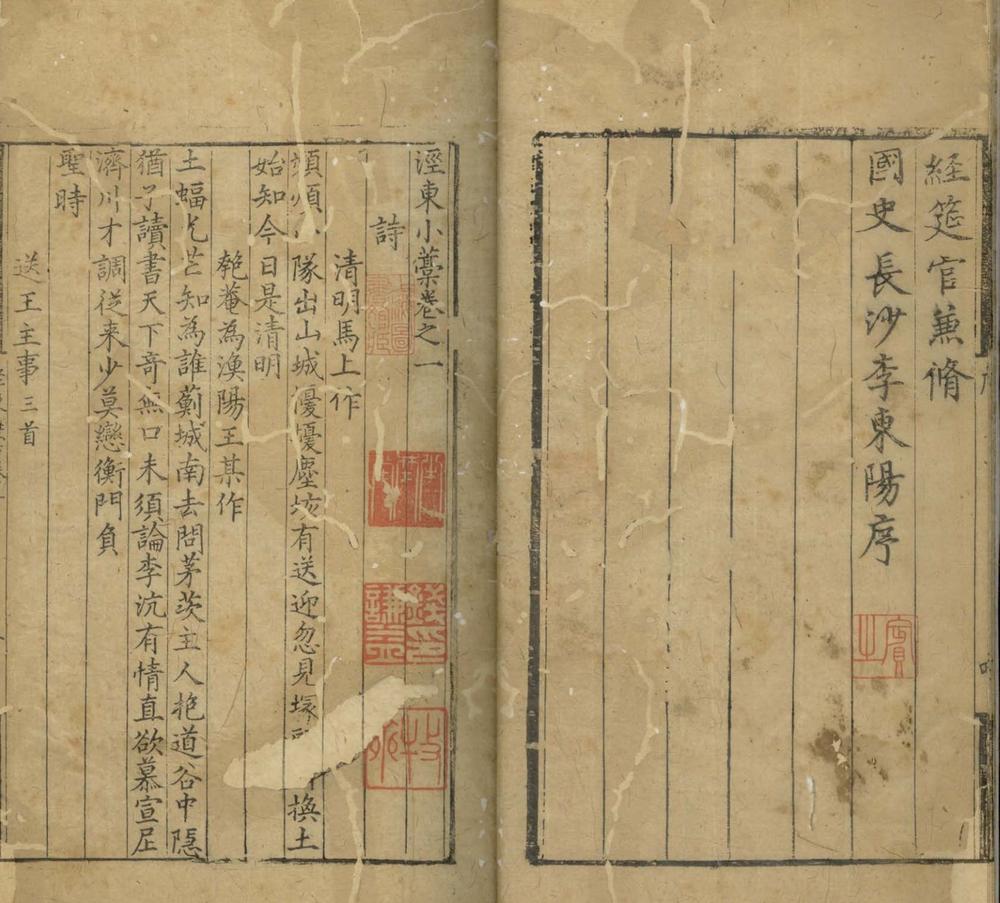 経筵官兼脩
國史長沙李東陽序
涇東小藁卷之一
詩
清明馬上作
隊出山城優憂塵坊有送迎忽見塚換土
始知今日是清明
匏菴為漁陽王某作
土蝠光芒知為誰薊城南去問茅茨主人抱道谷中隱
猶子讀書天下奇無口未須論李沆有情直欲慕宣尼
濟川才調從来少莫戀衡門負
聖時
送王主事三首